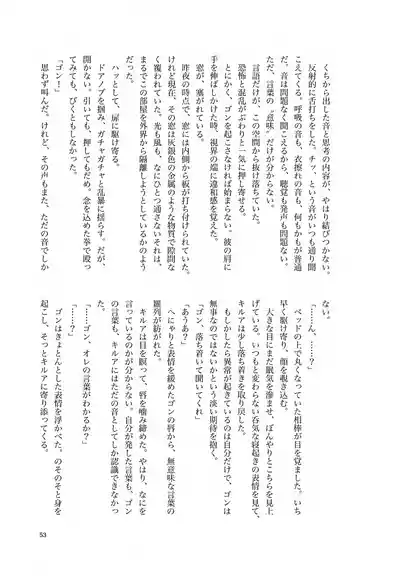 くちから出した音と思考の内容が、やはり結びつかない。
反射的に舌打ちをした。チッ、という音がいつも通り聞
こえてくる。呼吸の音も、衣擦れの音も、何もかもが普通
だ。音は問題なく聞こえるから、聴覚も発声も問題ない。
ただ、言葉の〝意味〟だけが分からない。
言語だけが、この空間から抜け落ちていた。
恐怖と混乱がぶわりと一気に押し寄せる。
とにかく、ゴンを起こさなければ始まらない。彼の肩に
手を伸ばしかけた時、視界の端に違和感を覚えた。
窓が、塞がれている。
昨夜の時点で、窓には内側から板が打ち付けられていた。
けれど現在、その窓は灰銀色の金属のような物質で隙間な
く覆われていた。光も風も、なにひとつ通さないそれは、
まるでこの部屋を外界から隔離しようとしているかのよう
だった。
ハッとして、扉に駆け寄る。
ドアノブを掴み、ガチャガチャと乱暴に揺らす。だが、
開かない。引いても、押してもだめ。念を込めた拳で殴っ
てみても、びくともしなかった。
「ゴン！」
思わず叫んだ。けれど、その声もまた、ただの音でしか
ない。
「……ん、……？」
ベッドの上で丸くなっていた相棒が目を覚ました。いち
早く駆け寄り、顔を覗き込む。
大きな目にまだ眠気を滲ませ、ぼんやりとこちらを見上
げている。いつもと変わらない呑気な寝起きの表情を見て、
キルアは少し落ち着きを取り戻した。
もしかしたら異常が起きているのは自分だけで、ゴンは
無事なのではないかという淡い期待を抱く。
「ゴン、落ち着いて聞いてくれ」
「あうあ？」
へにゃりと表情を緩めたゴンの唇から、無意味な言葉の
羅列が紡がれた。
キルアは目を瞑って、唇を噛み締めた。やはり、なにを
言っているのかが分からない。自分が発した言葉も、ゴン
の言葉も、キルアにはただの音としてしか認識できなかっ
た。
「……ゴン、オレの言葉がわかるか？」
「……？」
ゴンはきょとんとした表情を浮かべた。のそのそと身を
起こし、そっとキルアに寄り添ってくる。
53